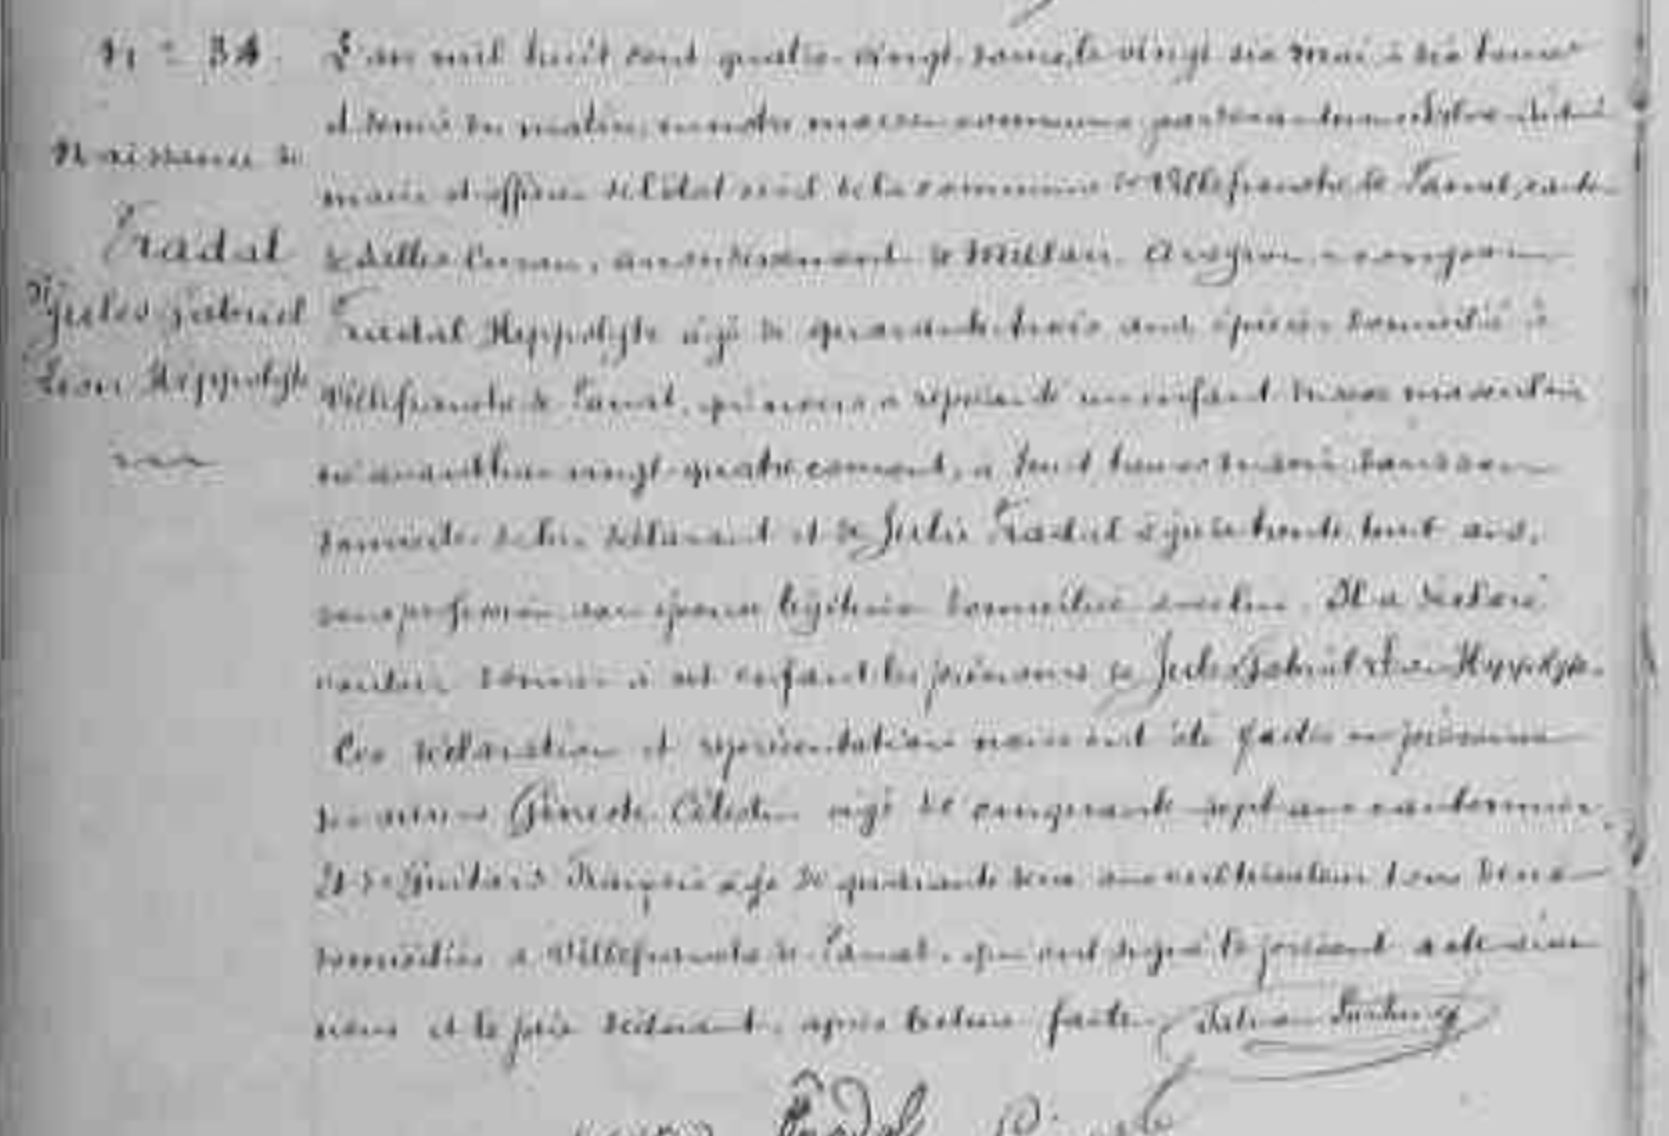 N° 34.
Naissance de
Fradal
Jules Gabriel
Léon Hippolyte
L'an mil huit cent quatre-vingt- le vingt six mai à dix heures
et demie du matin, maison commune par devant
maire et officier de l'état civil de la commune de Villefranche de Panat, canton
de Salles Curan, arrondissement de Millau Aveyron, a comparu
Fradal Hyppolyte âgé de quarante trois ans, épicier domicilié à
Villefranche de Panat, qui nous a représenté un enfant du sexe masculin
né avant hier vingt-quatre courant, à huit heures du soir dans son
domicile de lui déclarant et de Julie Fradal âgée de trente huit ans,
sans profession son épouse légitime domiciliée avec lui. Il a déclaré
vouloir donner à cet enfant les prénoms de Jules Gabriel Léon Hyppolyte.
Ces déclaration et représentation nous ont été faites en présence
des sieurs Gineste Célestin âgé de cinquante sept ans cantonnier
Et de Guitard François âgé de quarante deux ans cultivateur tous deux
domiciliés à Villefranche de Panat, qui ont signé le présent acte avec
nous et le père déclarant, après lecture faite.
Fradal